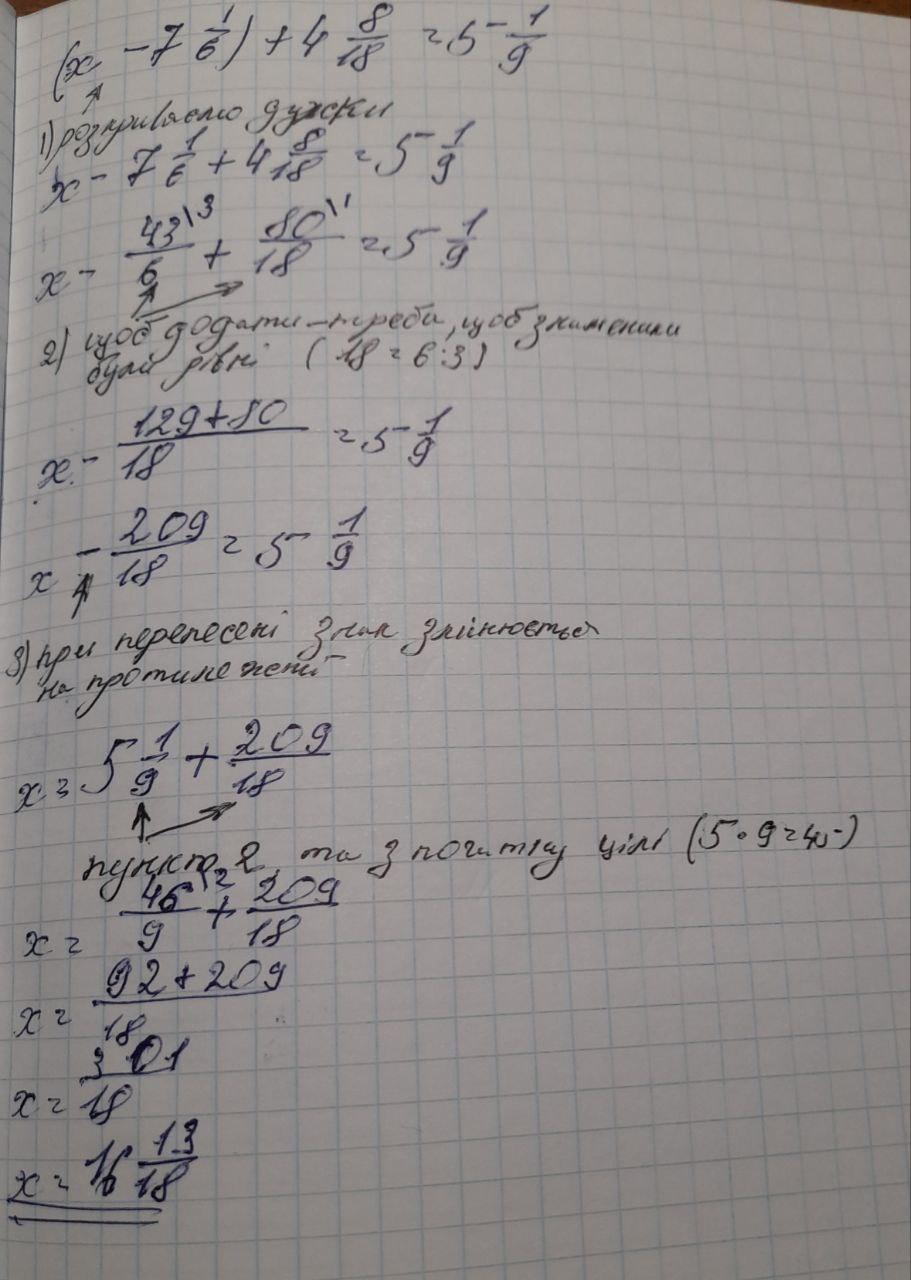 (x - 7 1/6) + 4 8/18 = 5 1/9
1) розкриваємо дужки
x - 7 1/6 + 4 8/18 = 5 1/9
x - 43\3/6 + 80\1/18 = 5 1/9
2) щоб додати - треба, щоб знаменики
були рівні (18 = 6:3)
x - 129+80/18 = 5 1/9
x - 209/18 = 5 1/9
3) при перенесені знак змінюється
на протилежний
x = 5 1/9 + 209/18
пункт 2, та з початку цілі (5·9=45)
x = 46\2/9 + 209/18
x = 92+209/18
x = 301/18
x = 16 13/18